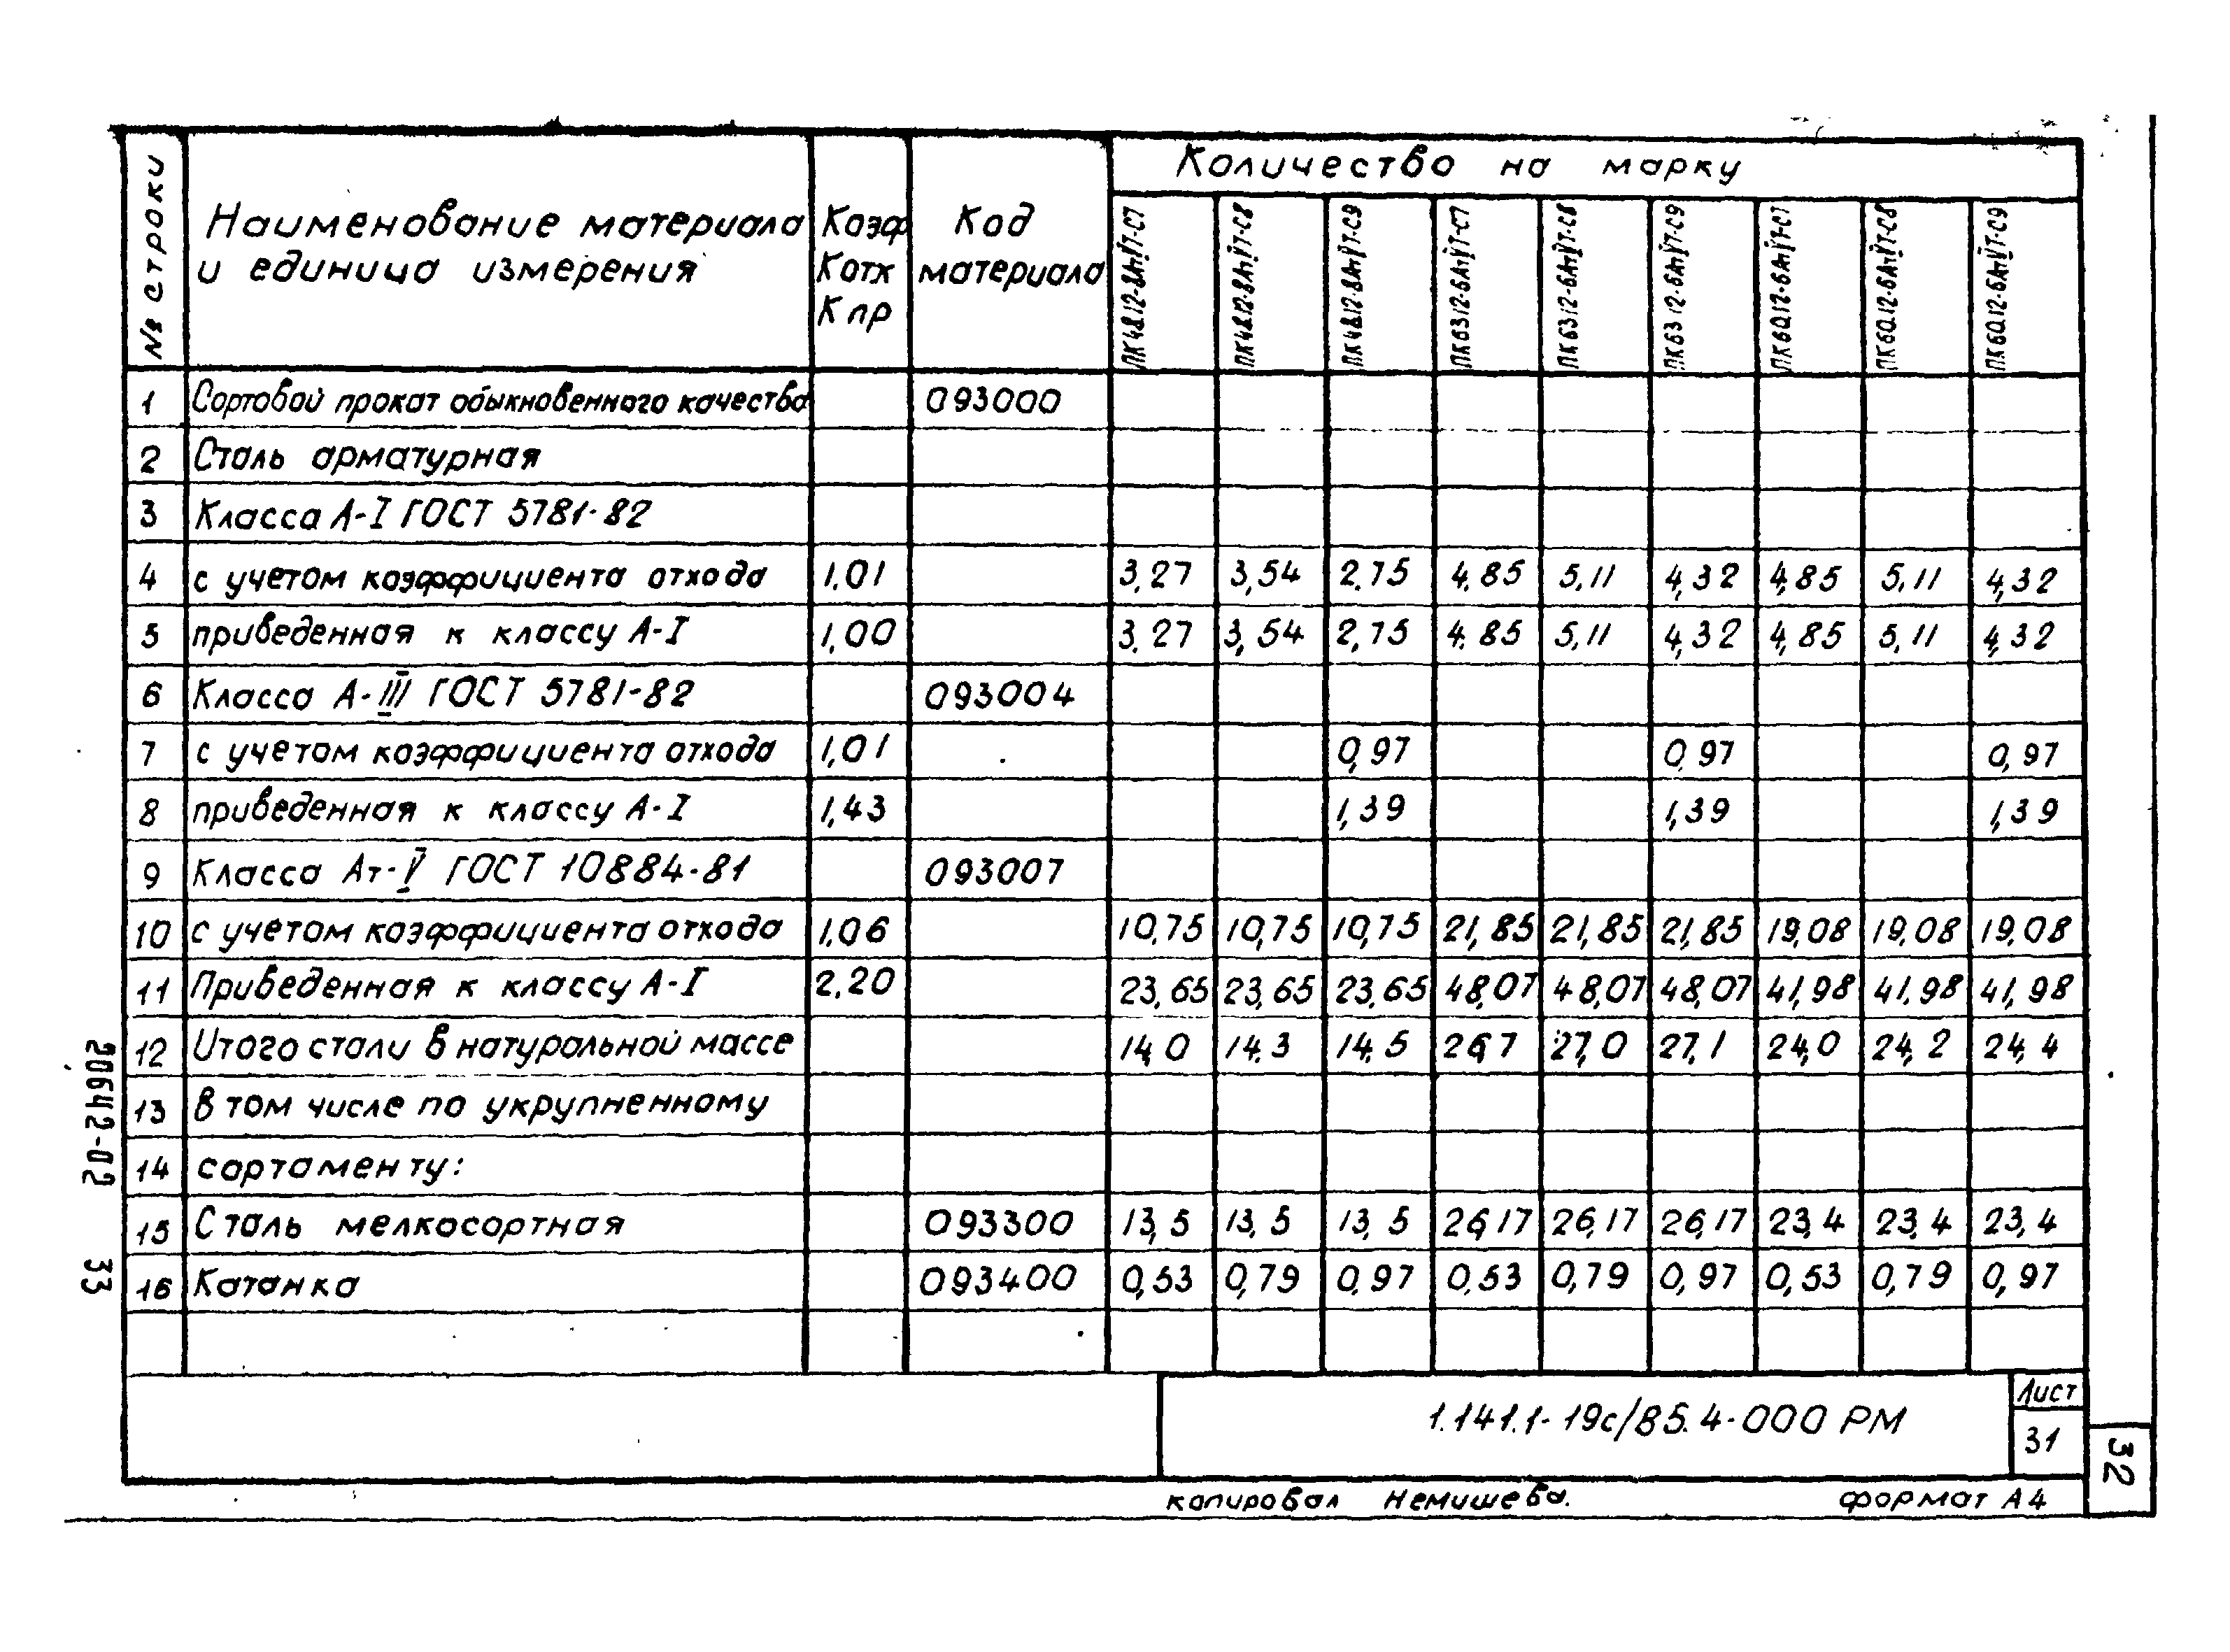 № строки
Наименование материала
и единица измерения
Коэф
Котх
Кпр
Код
материала
Количество на марку
ПК48.12-8АтVТ-С7
ПК48.12-8АтVТ-С8
ПК48.12-8АтVТ-С9
ПК63.12-6АтVТ-С7
ПК63.12-6АтVТ-С8
ПК63.12-6АтVТ-С9
ПК60.12-6АтVТ-С7
ПК60.12-6АтVТ-С8
ПК60.12-6АтVТ-С9
1 Сортовой прокат обыкновенного качества 093000
2 Сталь арматурная
3 Класса А-I ГОСТ 5781-82
4 с учетом коэффициента отхода 1,01 3,27 3,54 2,75 4,85 5,11 4,32 4,85 5,11 4,32
5 приведенная к классу А-I 1,00 3,27 3,54 2,75 4,85 5,11 4,32 4,85 5,11 4,32
6 Класса А-III ГОСТ 5781-82 093004
7 с учетом коэффициента отхода 1,01 0,97 0,97 0,97
8 приведенная к классу А-I 1,43 1,39 1,39 1,39
9 Класса Ат-V ГОСТ 10884-81 093007
10 с учетом коэффициента отхода 1,06 10,75 10,75 10,75 21,85 21,85 21,85 19,08 19,08 19,08
11 Приведенная к классу А-I 2,20 23,65 23,65 23,65 48,07 48,07 48,07 41,98 41,98 41,98
12 Итого стали в натуральной массе 14,0 14,3 14,5 26,7 27,0 27,1 24,0 24,2 24,4
13 в том числе по укрупненному
14 сортаменту:
15 Сталь мелкосортная 093300 13,5 13,5 13,5 26,17 26,17 26,17 23,4 23,4 23,4
16 Катанка 093400 0,53 0,79 0,97 0,53 0,79 0,97 0,53 0,79 0,97
20642-02 33
1.141.1-19с/85.4-000 РМ
Лист
31
32
копировал Немишева. формат А4